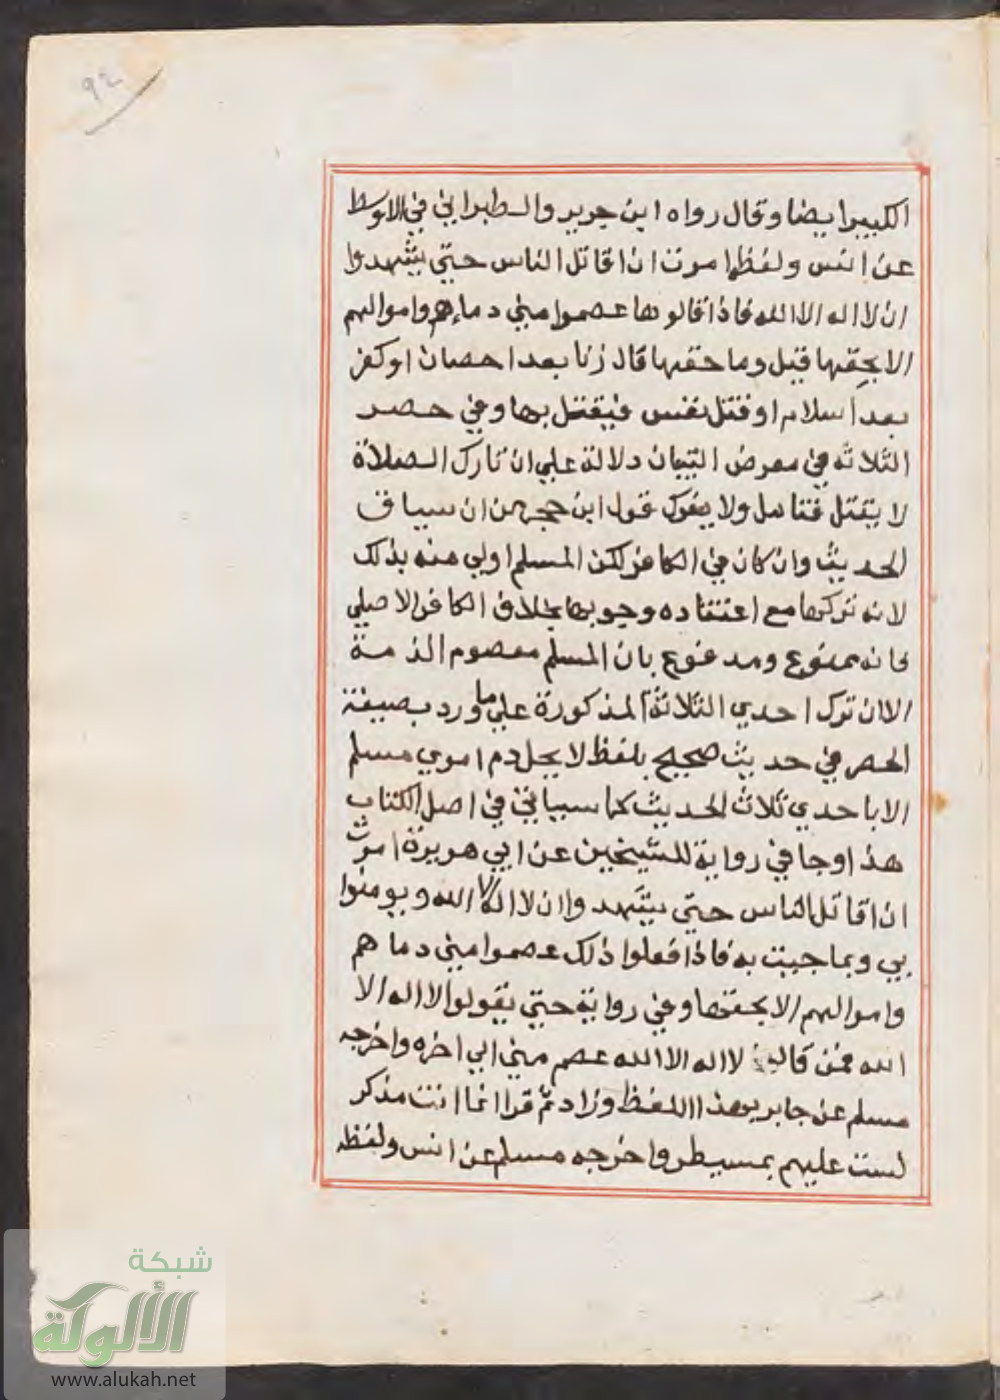 92
الكبير ايضا وقال رواه ابن جرير والطبراني في الاوسط
عن انس ولفظه امرت ان اقاتل الناس حتي يشهدوا
ان لا اله الا الله فاذا قالوها عصموا مني دماءهم واموالهم
الا بحقها قيل وما حقها قال زنا بعد احصان او كفر
بعد اسلام او قتل نفس فيقتل بها وفي حصر
الثلاثه في معرض التبيان دلالة علي ان تارك الصلاة
لا يقتل فتامل ولا يغرك قول ابن حجر من ان سياق
الحديث وان كان في الكافر لكن المسلم اولي منه بذلك
لانه تركها مع اعتقاده وجوبها بخلاف الكافر الاصلي
فانه ممنوع ومدفوع بان المسلم معصوم الذمة
الا ان ترك احدي الثلاثة المذكورة علي ما ورد بصيغة
الحصر في حديث صحيح بلفظ لا يحل دم اموي مسلم
الا باحدي ثلاث الحديث كما سياتي في اصل الكتاب
هذا وجا في رواية للشيخين عن ابي هريرة امرت
ان اقاتل الناس حتي يشهدوا ان لا اله الا الله ويومنوا
بي وبما جيت به فاذا فعلوا ذلك عصموا مني دماهم
واموالهم الا بحقها وفي رواية حتي يقولوا لا اله الا
الله فمن قال لا اله الا الله عصم مني الي اخره واخرجه
مسلم عن جابر بهذا اللفظ وزاد ثم قرا انما انت مذكر
لست عليهم بمسيطر واخرجه مسلم عن انس ولفظه
شبكة
الألوكة
www.alukah.net